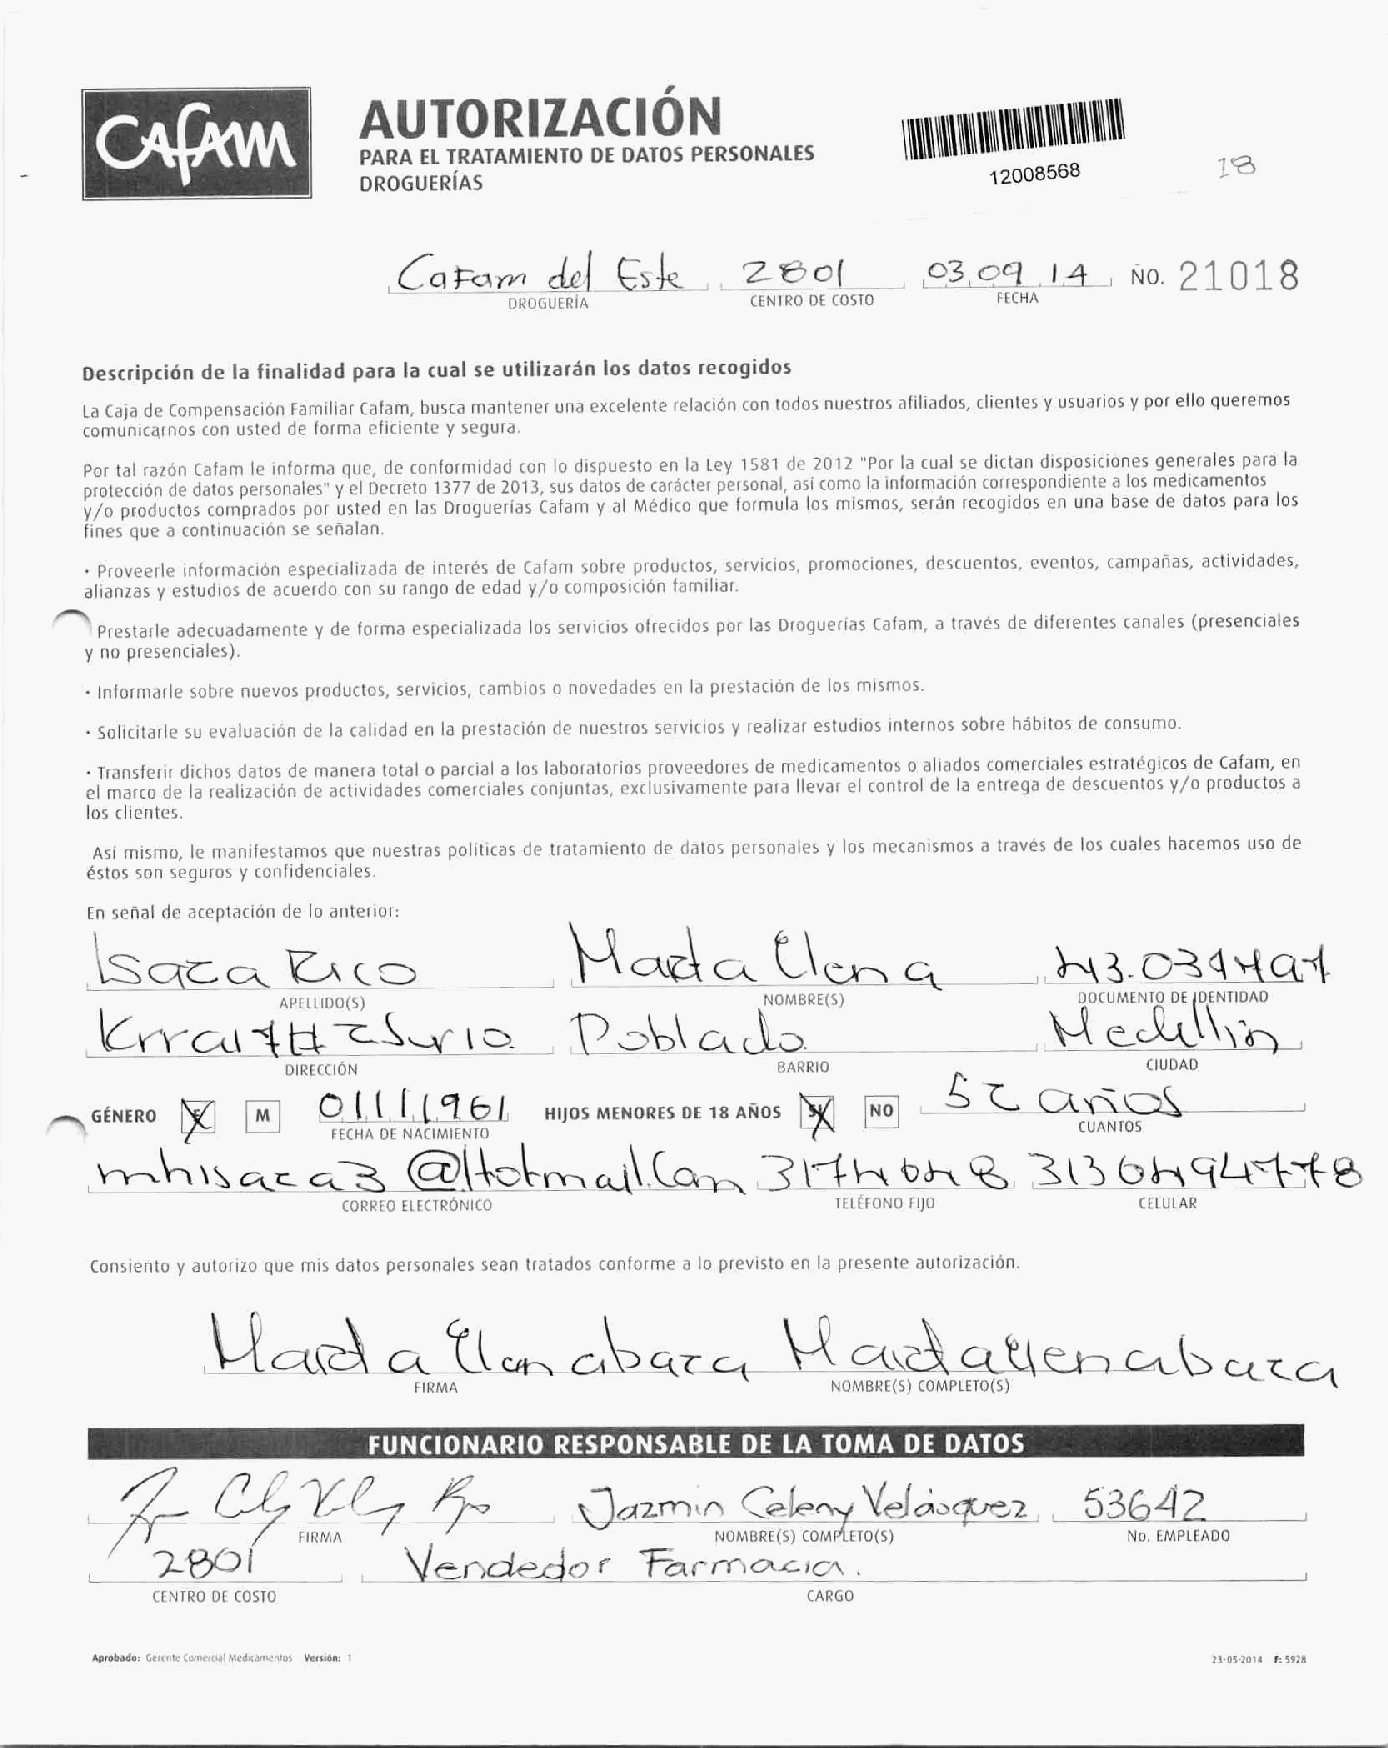 CAfAM
AUTORIZACIÓN
PARA EL TRATAMIENTO DE DATOS PERSONALES
DROGUERÍAS
12008568
18
Cafam del Este 2801 03 09 14 NO. 21018
DROGUERÍA CENTRO DE COSTO FECHA
Descripción de la finalidad para la cual se utilizarán los datos recogidos
La Caja de Compensación Familiar Cafam, busca mantener una excelente relación con todos nuestros afiliados, clientes y usuarios y por ello queremos
comunicarnos con usted de forma eficiente y segura.
Por tal razón Cafam le informa que, de conformidad con lo dispuesto en la Ley 1581 de 2012 "Por la cual se dictan disposiciones generales para la
protección de datos personales" y el Decreto 1377 de 2013, sus datos de carácter personal, así como la información correspondiente a los medicamentos
y/o productos comprados por usted en las Droguerías Cafam y al Médico que formula los mismos, serán recogidos en una base de datos para los
fines que a continuación se señalan.
• Proveerle información especializada de interés de Cafam sobre productos, servicios, promociones, descuentos, eventos, campañas, actividades,
alianzas y estudios de acuerdo con su rango de edad y/o composición familiar.
Prestarle adecuadamente y de forma especializada los servicios ofrecidos por las Droguerías Cafam, a través de diferentes canales (presenciales
y no presenciales).
• Informarle sobre nuevos productos, servicios, cambios o novedades en la prestación de los mismos.
• Solicitarle su evaluación de la calidad en la prestación de nuestros servicios y realizar estudios internos sobre hábitos de consumo.
• Transferir dichos datos de manera total o parcial a los laboratorios proveedores de medicamentos o aliados comerciales estratégicos de Cafam, en
el marco de la realización de actividades comerciales conjuntas, exclusivamente para llevar el control de la entrega de descuentos y/o productos a
los clientes.
Así mismo, le manifestamos que nuestras políticas de tratamiento de datos personales y los mecanismos a través de los cuales hacemos uso de
éstos son seguros y confidenciales.
En señal de aceptación de lo anterior:
Isaza Rico Marta Elena
APELLIDO(S) NOMBRE(S) DOCUMENTO DE IDENTIDAD
Poblado Medellin
DIRECCIÓN BARRIO CIUDAD
GÉNERO M 01 11 1961 HIJOS MENORES DE 18 AÑOS SI NO 52 años
FECHA DE NACIMIENTO CUANTOS
mhisaza3@Hotmail.Com
CORREO ELECTRÓNICO TELÉFONO FIJO CELULAR
Consiento y autorizo que mis datos personales sean tratados conforme a lo previsto en la presente autorización.
Marta Elena Marta Elena
FIRMA NOMBRE(S) COMPLETO(S)
FUNCIONARIO RESPONSABLE DE LA TOMA DE DATOS
Jazmin Celeny Velásquez 53642
FIRMA NOMBRE(S) COMPLETO(S) No. EMPLEADO
2801 Vendedor Farmacia.
CENTRO DE COSTO CARGO
Aprobado: Gerente Comercial Medicamentos Versión: 1 23-05-2014 F: 5928